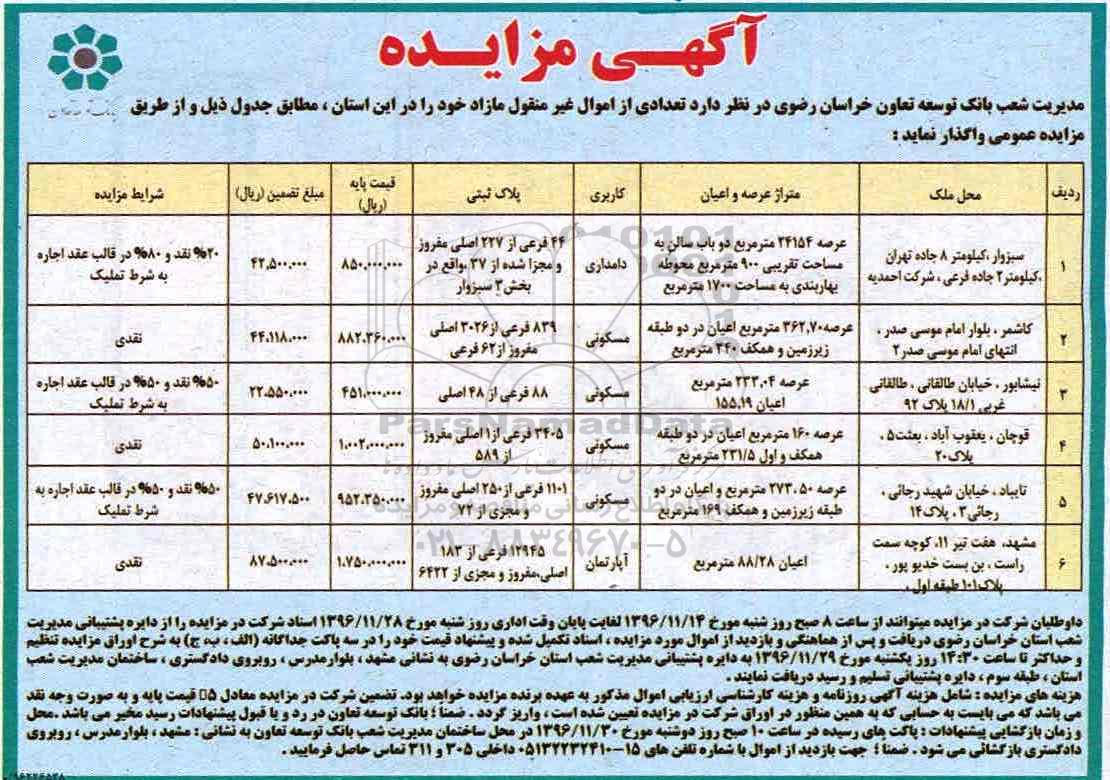 آگهی مزایده
مدیریت شعب بانک توسعه تعاون خراسان رضوی در نظر دارد تعدادی از اموال غیر منقول مازاد خود را در این استان ، مطابق جدول ذیل و از طریق
مزایده عمومی واگذار نماید :
ردیف محل ملک متراژ عرصه و اعیان کاربری پلاک ثبتی قیمت پایه (ریال) مبلغ تضمین (ریال) شرایط مزایده
۱ سبزوار ،کیلومتر ۸ جاده تهران ،کیلومتر۲ جاده فرعی ، شرکت احمدیه عرصه ۲۴۱۵۴ مترمربع دو باب سالن به مساحت تقریبی ۹۰۰ مترمربع محوطه بهاربندی به مساحت ۱۷۰۰ مترمربع دامداری ۴۴ فرعی از ۲۲۷ اصلی مفروز و مجزا شده از ۳۷ ،واقع در بخش۳ سبزوار ۸۵۰.۰۰۰.۰۰۰ ۴۲,۵۰۰,۰۰۰ ۲۰% نقد و ۸۰% در قالب عقد اجاره به شرط تملیک
۲ کاشمر ، بلوار امام موسی صدر ، انتهای امام موسی صدر۲ عرصه۳۶۲,۷۰ مترمربع اعیان در دو طبقه زیرزمین و همکف ۳۴۰ مترمربع مسکونی ۸۳۹ فرعی از۳۰۲۶ اصلی مفروز از۶۲ فرعی ۸۸۲,۳۶۰,۰۰۰ ۴۴,۱۱۸,۰۰۰ نقدی
۳ نیشابور ، خیابان طالقانی ، طالقانی غربی ۱۸/۱ پلاک ۹۲ عرصه ۲۳۳,۰۴ مترمربع اعیان ۱۵۵,۱۹ مسکونی ۸۸ فرعی از ۴۸ اصلی ۴۵۱,۰۰۰,۰۰۰ ۲۲,۵۵۰,۰۰۰ ۵۰% نقد و ۵۰% در قالب عقد اجاره به شرط تملیک
۴ قوچان ، یعقوب آباد ، بعثت۵ ، پلاک۲۰ عرصه ۱۶۰ مترمربع اعیان در دو طبقه همکف و اول ۲۳۱/۵ مترمربع مسکونی ۳۴۰۵ فرعی از۱ اصلی مفروز از ۵۸۹ ۱,۰۰۲,۰۰۰,۰۰۰ ۵۰,۱۰۰,۰۰۰ نقدی
۵ تایباد ، خیابان شهید رجائی ، رجائی۲ ، پلاک۱۴ عرصه ۲۷۳,۵۰ مترمربع و اعیان در دو طبقه زیرزمین و همکف ۱۶۹ مترمربع مسکونی ۱۱۰۱ فرعی از۲۵۰ اصلی مفروز و مجزی از ۷۲ ۹۵۲,۳۵۰,۰۰۰ ۴۷,۶۱۷,۵۰۰ ۵۰% نقد و ۵۰% در قالب عقد اجاره به شرط تملیک
۶ مشهد، هفت تیر ۱۱، کوچه سمت راست ، بن بست خدیو پور ، پلاک۱۰۱ طبقه اول . اعیان ۸۸/۲۸ مترمربع آپارتمان ۱۲۹۴۵ فرعی از ۱۸۳ اصلی،مفروز و مجزی از ۶۴۲۲ ۱,۷۵۰,۰۰۰,۰۰۰ ۸۷,۵۰۰,۰۰۰ نقدی
ParsNamadData
۰۲۱-۸۸۳۴۹۶۷۰-۵
داوطلبان شرکت در مزایده میتوانند از ساعت ۸ صبح روز شنبه مورخ ۱۳۹۶/۱۱/۱۴ لغایت پایان وقت اداری روز شنبه مورخ ۱۳۹۶/۱۱/۲۸ اسناد شرکت در مزایده را از دایره پشتیبانی مدیریت
شعب استان خراسان رضوی دریافت و پس از هماهنگی و بازدید از اموال مورد مزایده ، اسناد تکمیل شده و پیشنهاد قیمت خود را در سه پاکت جداگانه (الف ، ب، ج) به شرح اوراق مزایده تنظیم
و حداکثر تا ساعت ۱۴:۳۰ روز یکشنبه مورخ ۱۳۹۶/۱۱/۲۹ به دایره پشتیبانی مدیریت شعب استان خراسان رضوی به نشانی مشهد ، بلوارمدرس ، روبروی دادگستری ، ساختمان مدیریت شعب
استان ، طبقه سوم ، دایره پشتیبانی تسلیم و رسید دریافت نمایند .
هزینه های مزایده : شامل هزینه آگهی روزنامه و هزینه کارشناسی ارزیابی اموال مذکور به عهده برنده مزایده خواهد بود. تضمین شرکت در مزایده معادل ۵ قیمت پایه و به صورت وجه نقد
می باشد که می بایست به حسابی که به همین منظور در اوراق شرکت در مزایده تعیین شده است ، واریز گردد . ضمناً ؛ بانک توسعه تعاون در رد و یا قبول پیشنهادات رسید مخیر می باشد .محل
و زمان بازگشایی پیشنهادات : پاکت های رسیده در ساعت ۱۰ صبح روز دوشنبه مورخ ۱۳۹۶/۱۱/۳۰ در محل ساختمان مدیریت شعب بانک توسعه تعاون به نشانی : مشهد ، بلوارمدرس ، روبروی
دادگستری بازگشائی می شود . ضمناً ؛ جهت بازدید از اموال با شماره تلفن های ۱۵-۰۵۱۳۲۲۳۲۴۱۰ داخلی ۳۰۵ و ۳۱۱ تماس حاصل فرمایید .